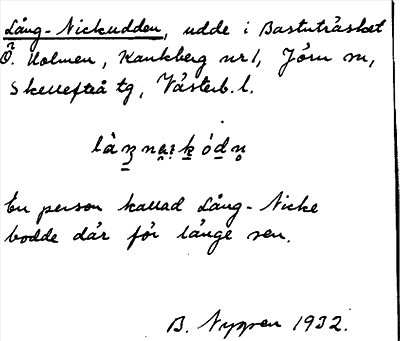 Lång-Nickudden, udde i Bastuträsket
Ö. Holmen, Kankberg nr 1, Jörn sn,
Skellefteå tg, Västerb. l.
En person kallad Lång-Nicke
bodde där för länge sen.
B. Nyppen 1932.